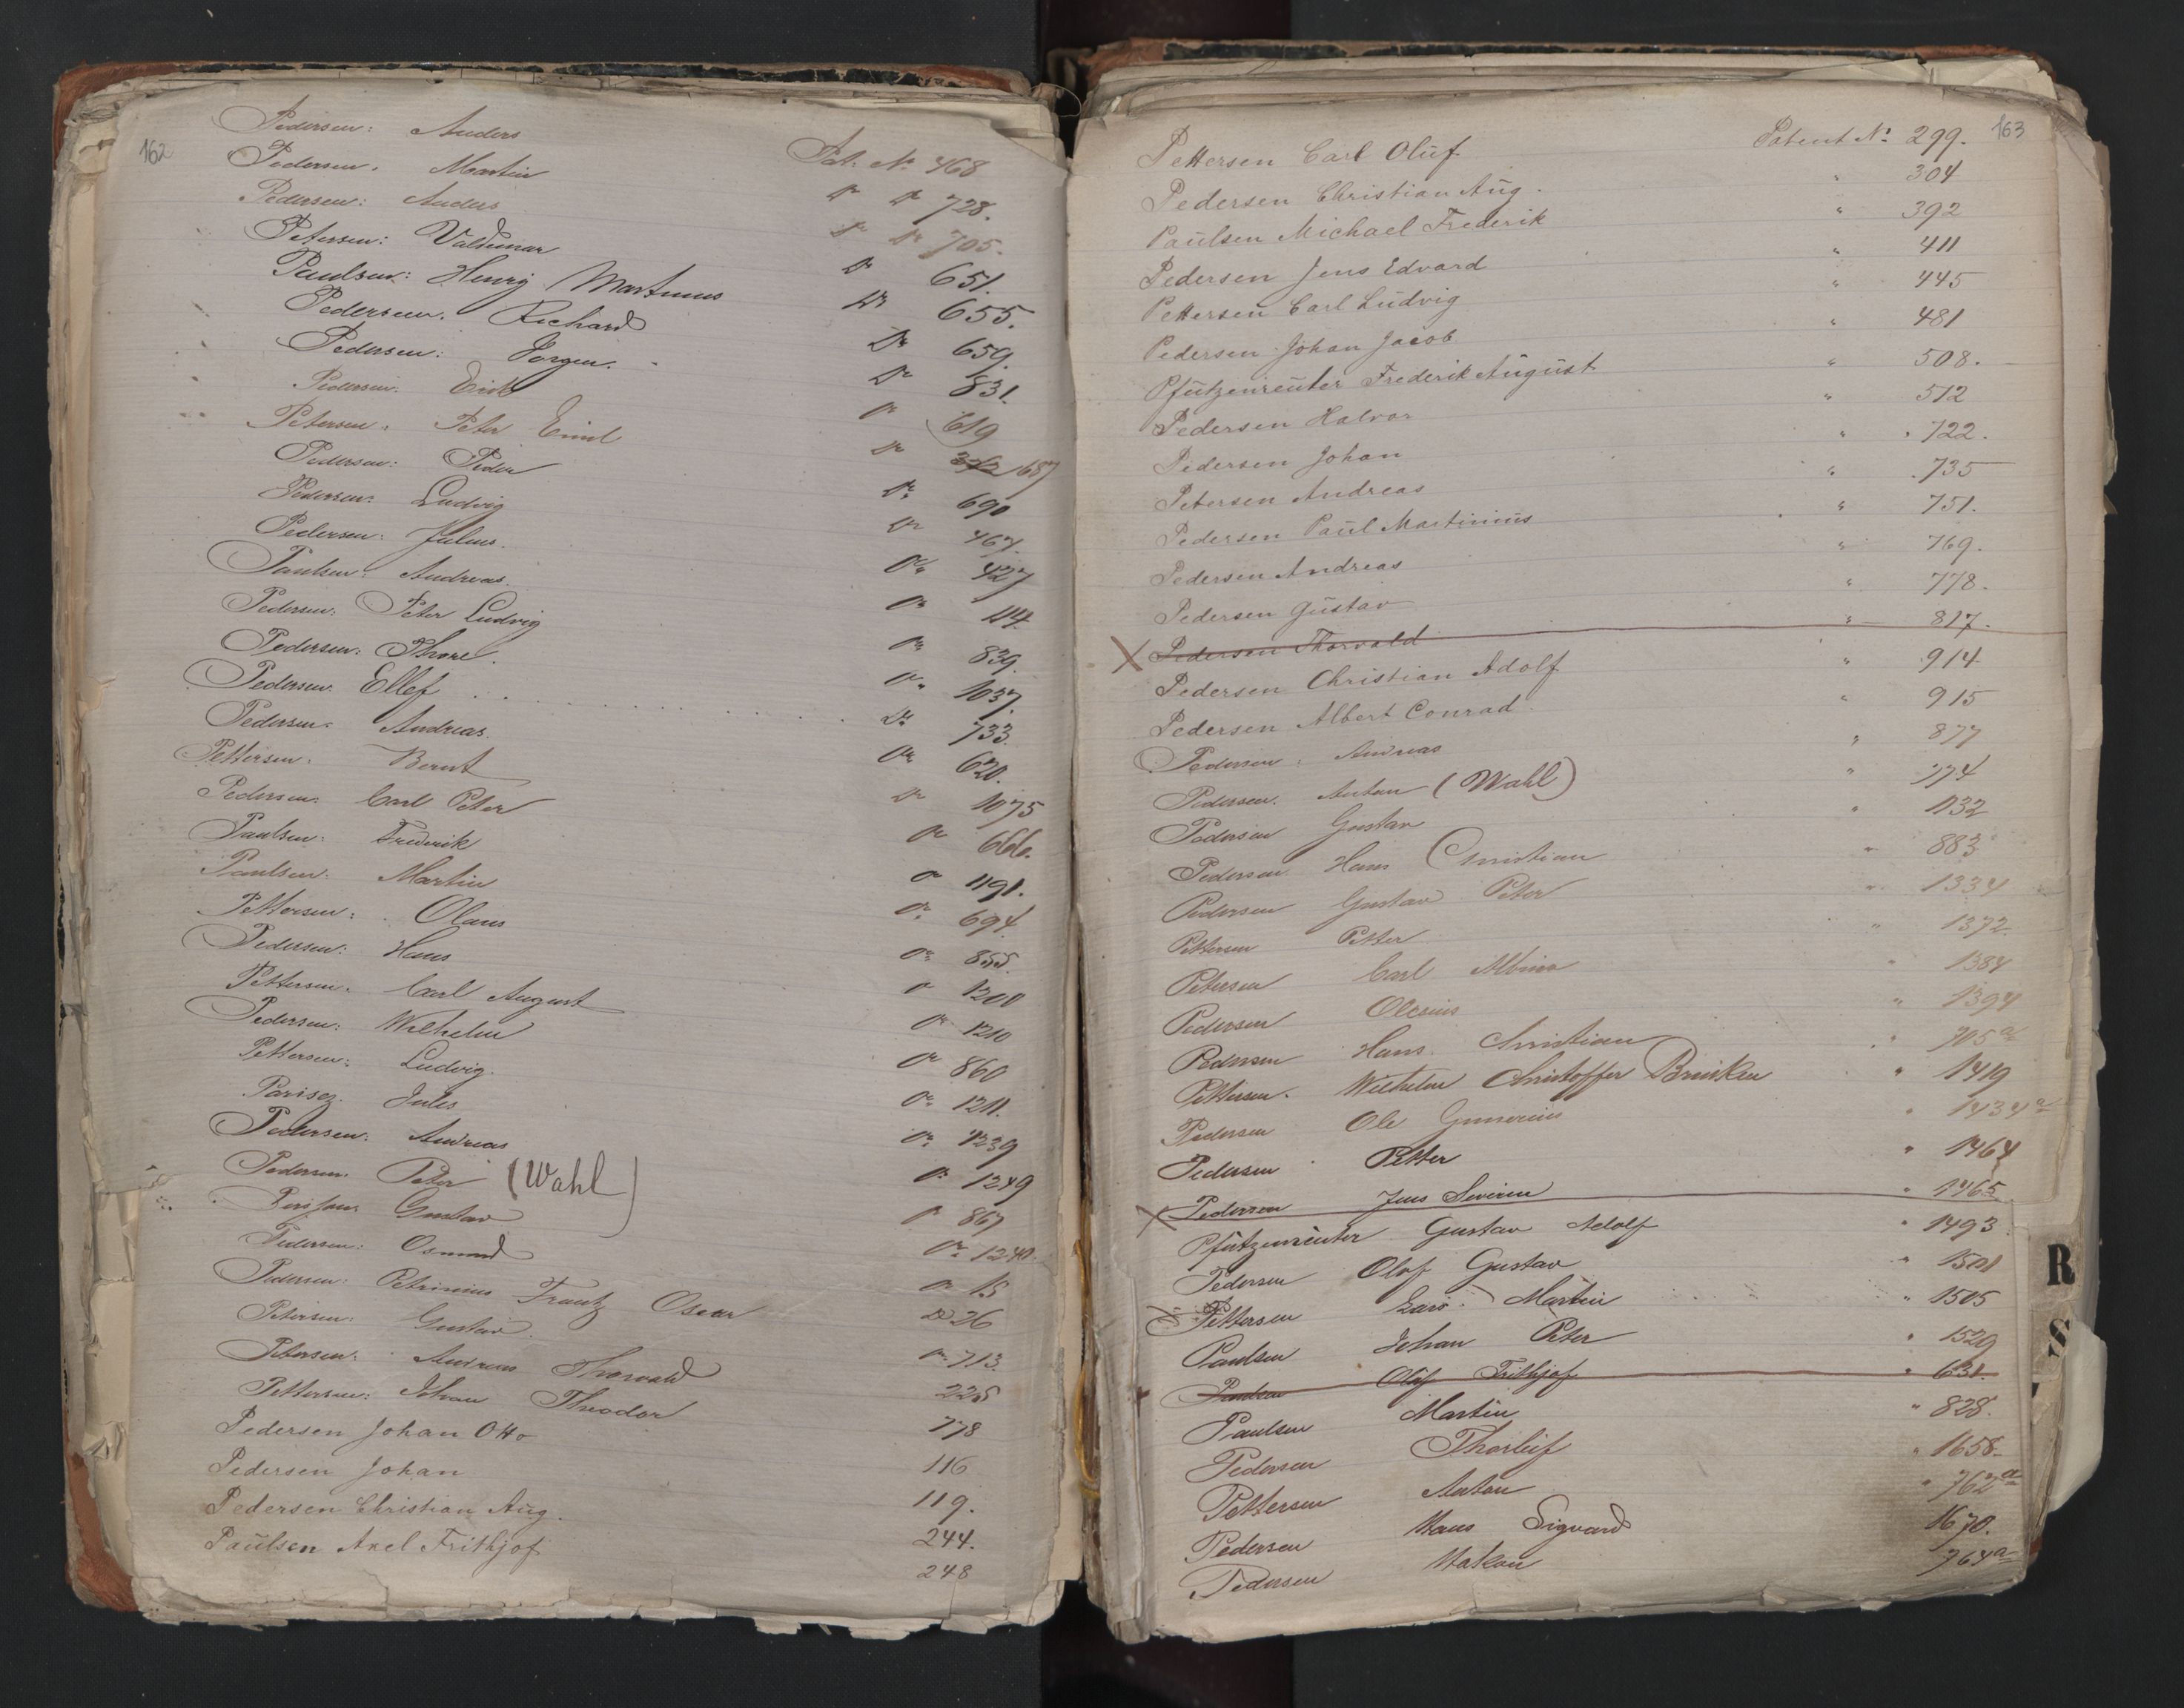 162
Pedersen: Anders Pat. No 468
Pedersen. Martin Do Do 728.
Pedersen: Anders Do Do 705.
Petersen: Valdemar Do 651.
Paulsen: Henrig Martinus Do 655.
Pedersen. Richard Do 659.
Pedersen: Jørgen. Do 831.
Pedersen. Erick Do 619
Petersen. Peter Emil Do 687
Pedersen: Peder Do 690
Pedersen: Ludvig Do 467.
Pedersen: Julius. Do 427
Paulsen: Andreas. Do 414.
Pedersen: Peter Ludvig Do 839.
Pedersen: Thore. Do 1037.
Pedersen. Ellef Do 733.
Pedersen: Andreas. Do 620.
Pettersen. Bernt Do 1075
Pedersen. Carl Peter Do 666.
Paulsen: Frederik Do 1191.
Paulsen: Martin Do 694.
Pettersen: Olaus Do 855.
Pedersen: Hans Do 1200
Pettersen. Carl August Do 1210
Pedersen: Wilhelm Do 860
Pettersen: Ludvig. Do 1211.
Parisez. Jules Do 1239
Pedersen: Andreas Do 1249
Pedersen. Peter (Wahl) Do 867
Gustav Do 1240.
Pedersen: Osmund Do 15
Pedersen: Petrinius Frantz Oscar Do 26
Petersen: Gustav. Do 713.
Petersen: Andreas Thorvald 225
Pettersen: Johan Theodor 778
Pedersen Johan Otto 116
Pedersen Johan 119.
Pedersen Christian Aug. 244.
Paulsen Axel Frithjof 248
163
Pettersen Carl Oluf Patent No 299.
Pedersen Christian Aug. " 304
Paulsen Michael Frederik " 392
Pedersen Jens Edvard " 411
Pettersen Carl Ludvig " 445
Pedersen Johan Jacob " 481
Pfützenreuter Frederik August " 508.
Pedersen Halvor " 512
Pedersen Johan " 722.
Petersen Andreas " 735
Pedersen Paul Martinius " 751.
Pedersen Andreas " 769.
Pedersen Gustav " 778.
X Pedersen Thorvald " 817.
Pedersen Christian Adolf " 914
Pedersen Albert Conrad " 915
Pedersen: Andreas " 877
Pedersen. Anton (Wahl) " 774
Pedersen Gustav " 1132
Pedersen Hans Christian " 883
Pedersen Gustav Peter " 1334
Pettersen Petter " 1372.
Petersen Carl Albin " 1384
Pedersen Olesius " 1394
Pedersen Hans Christian " 705a
Pettersen. Wilhelm Christoffer Brinken " 1419
Pedersen Ole Gunerius " 1434a
Pedersen Petter " 1464
X Pedersen Jens Severin " 1465
Pfützenreuter Gustav Adolf " 1493
Pedersen Olaf Gustav " 1501
Pettersen Lars Martin " 1505
Paulsen Johan Peter " 1529
Paulsen Olaf Frithjof " 631.
Paulsen Martin " 828.
Pedersen Thorleif " 1658.
Pettersen Anton " 762a
Pedersen Hans Sigvard 1670.
Pedersen Hakon 764a
R
S